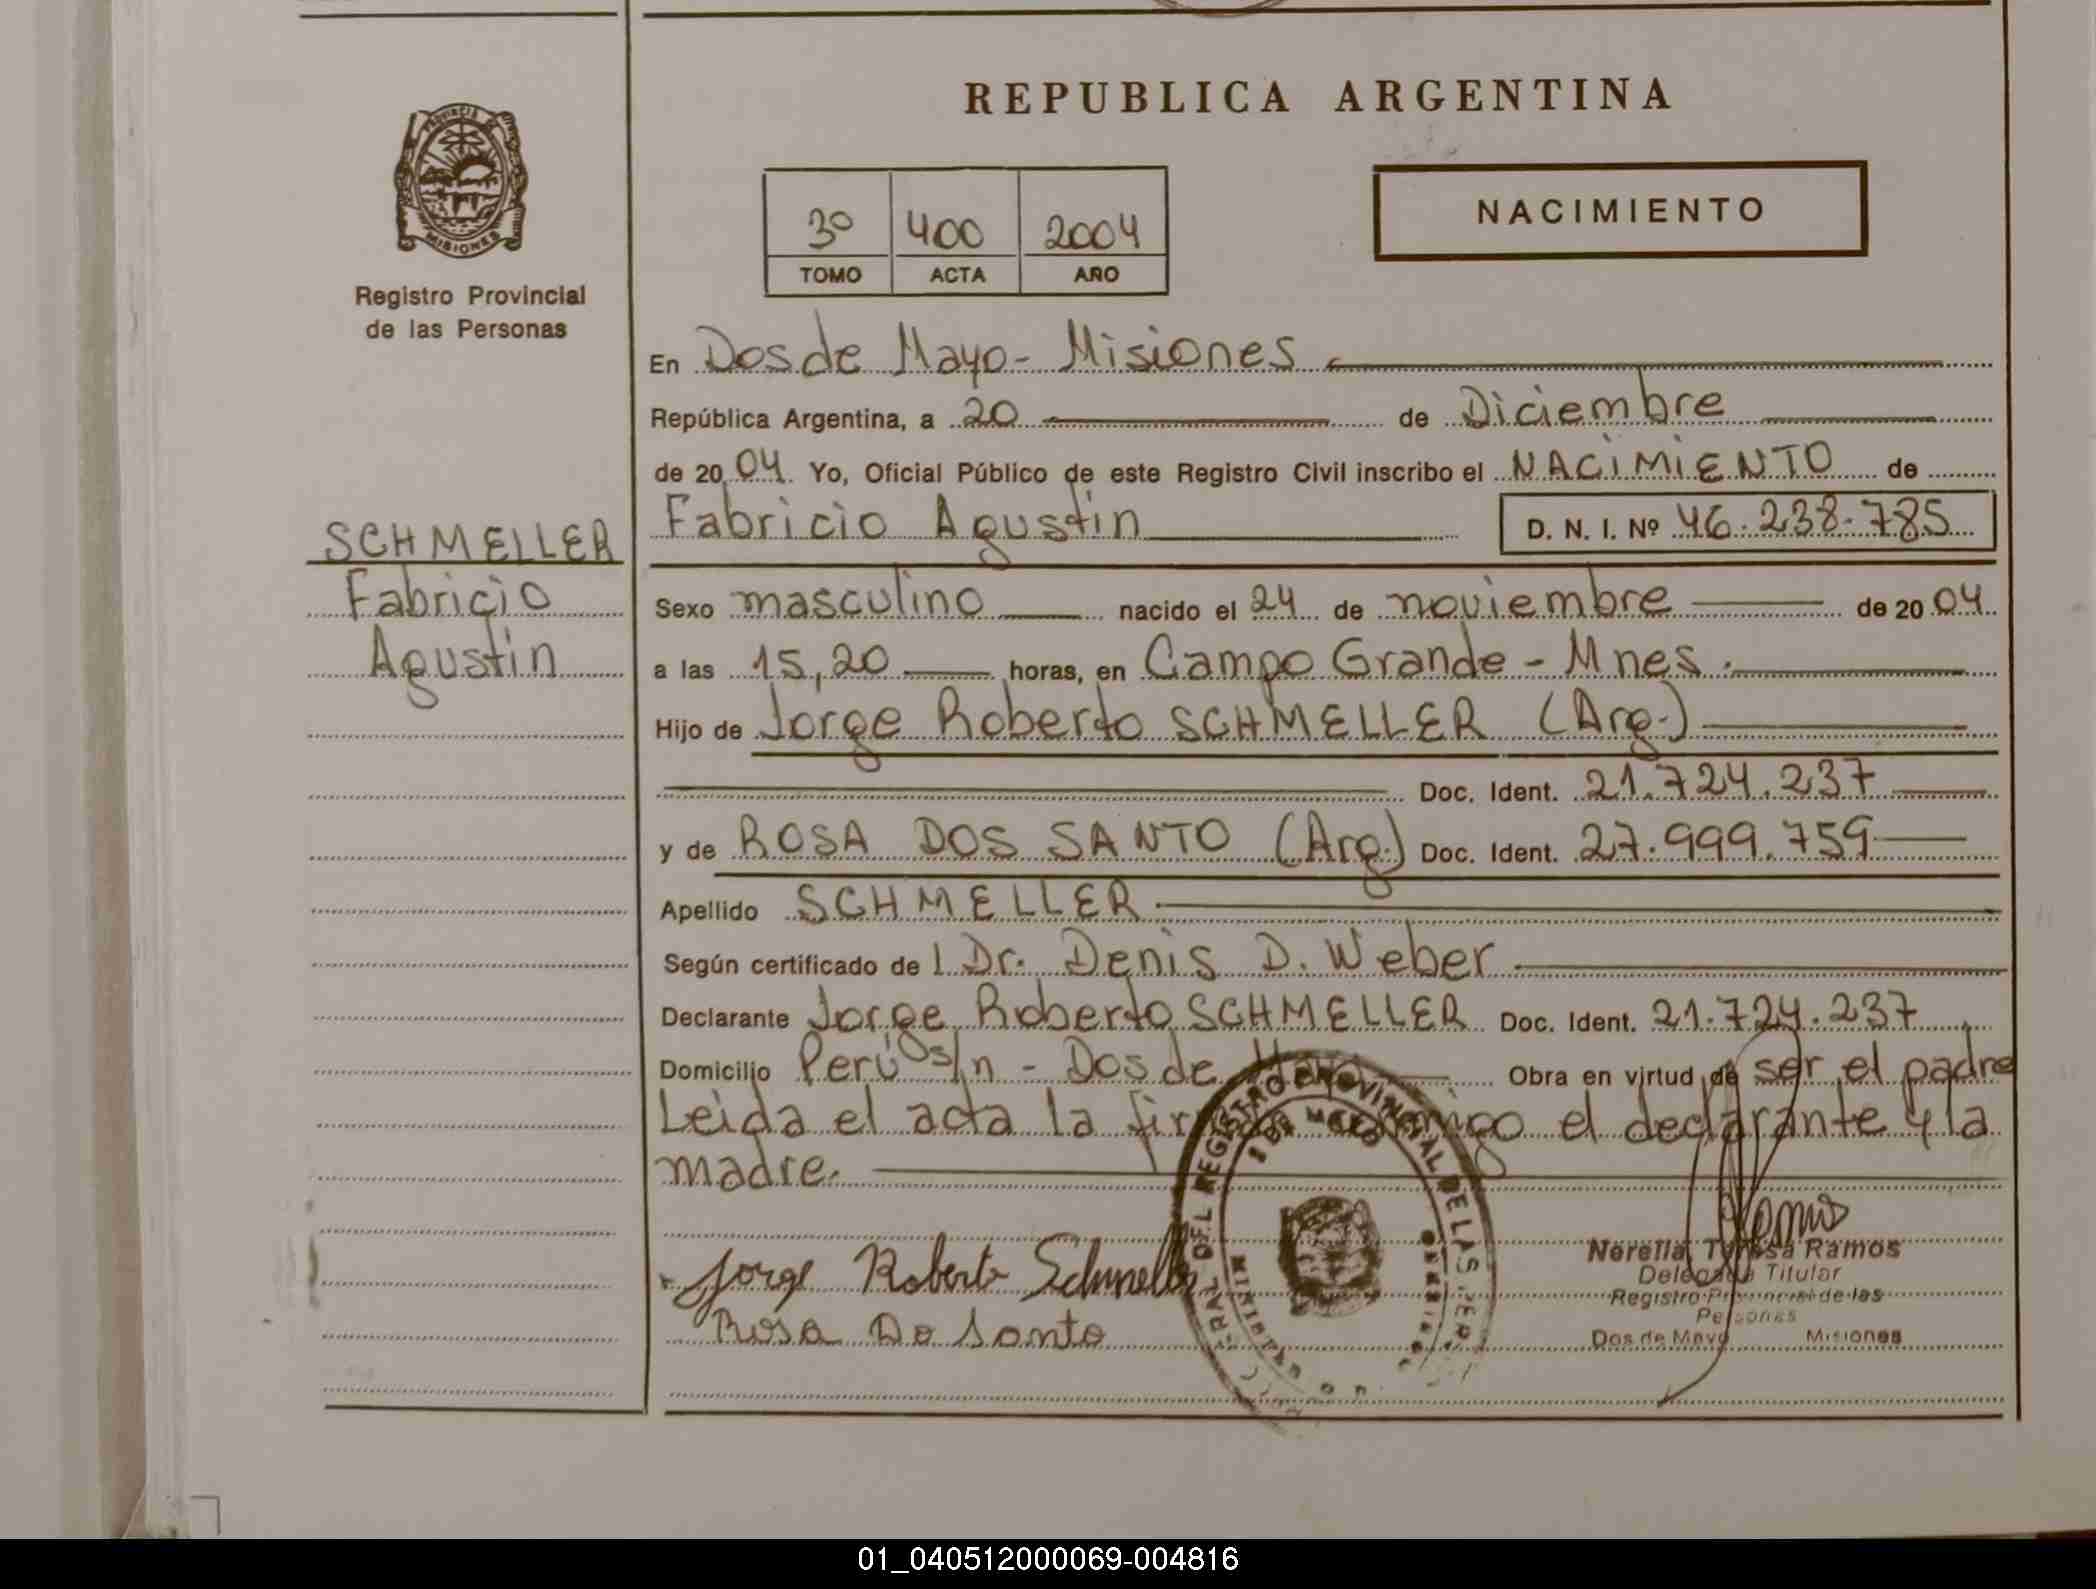 REPUBLICA ARGENTINA
PROVINCIA DE
MISIONES
Registro Provincial
de las Personas
3º 400 2004
TOMO ACTA AÑO
NACIMIENTO
En Dos de Mayo - Misiones
República Argentina, a 20 de Diciembre
de 20 04 Yo, Oficial Público de este Registro Civil inscribo el NACIMIENTO de
Fabricio Agustin D. N. I. Nº 46.238.785
SCHMELLER
Fabricio
Agustin
Sexo masculino nacido el 24 de noviembre de 20 04
a las 15,20 horas, en Campo Grande - Mnes.
Hijo de Jorge Roberto SCHMELLER (Arg.)
Doc. Ident. 21.724.237
y de ROSA DOS SANTO (Arg.) Doc. Ident. 27.999.759
Apellido SCHMELLER
Según certificado de l Dr. Denis D. Weber
Declarante Jorge Roberto SCHMELLER Doc. Ident. 21.724.237
Domicilio Perú s/n - Dos de Mayo Obra en virtud de ser el padre
Leida el acta la firman conmigo el declarante y la
madre.
Jorge Roberto Schmeller
Rosa Do Santo
REGISTRO PROVINCIAL DE LAS
Norella Teresa Ramos
Delegada Titular
Registro Provincial de las
Personas
Dos de Mayo Misiones
01_040512000069-004816